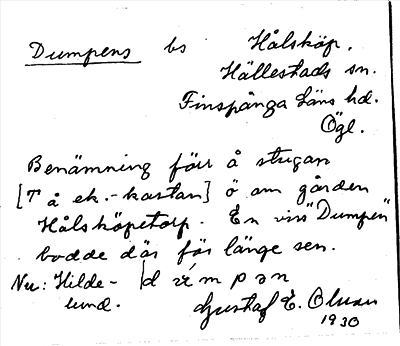 Dumpens bs Hålsköp.
Hällestads sn.
Finspånga Läns hd.
Ögl.
Benämning förr å stugan
[T å ek.-kartan] ö om gården
Hålsköpstorp. En viss "Dumpen"
bodde där för länge sen.
Nu: Hilde-
lund.
Gustaf E. Olsson
1930